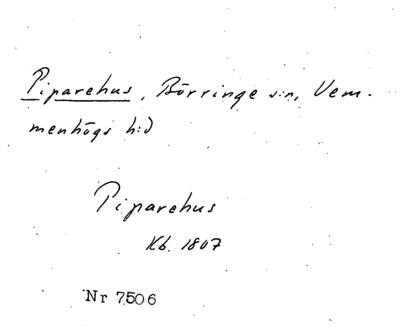 Piparehus, Börringe s:n, Vem-
menhögs h:d
Piparehus
Kb. 1807
Nr 7506